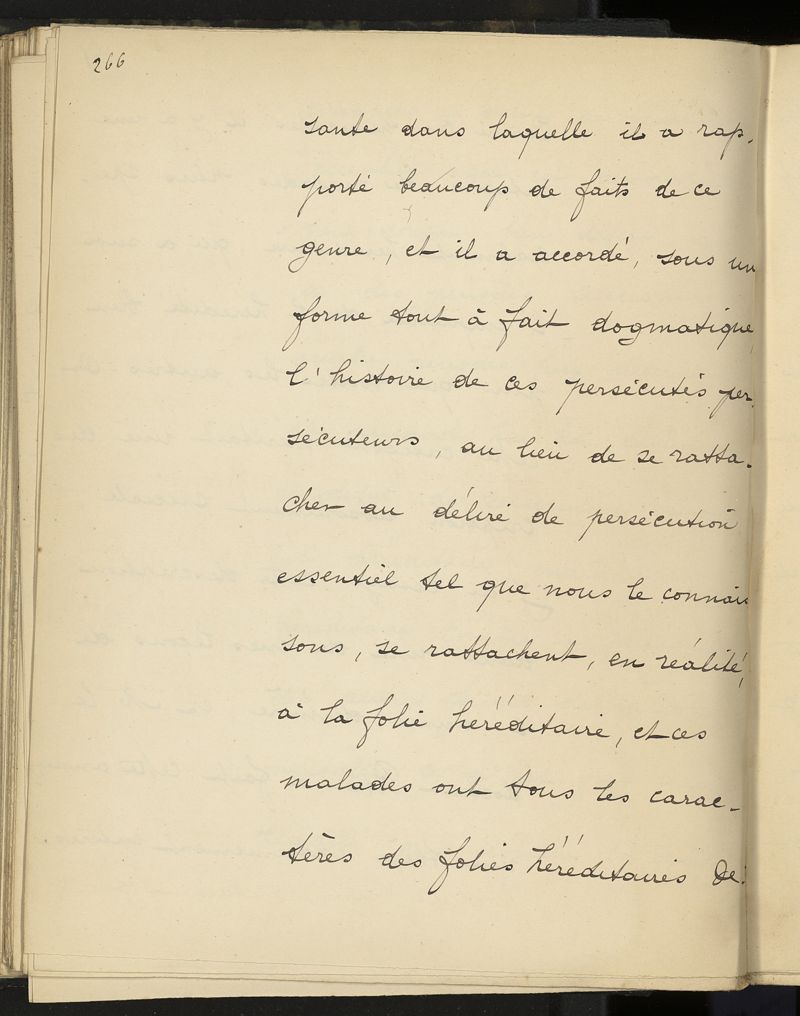 266
sante dans laquelle il a rap-
porté beaucoup de faits de ce
genre, et il a accordé, sous un
forme tout à fait dogmatique,
l'histoire de ces persécutés per-
sécuteurs, au lieu de se ratta-
cher au délire de persécution
essentiel tel que nous le connais
sons, se rattachent, en réalité,
à la folie héréditaire, et ces
malades ont tous les carac-
tères des folies héréditaires De